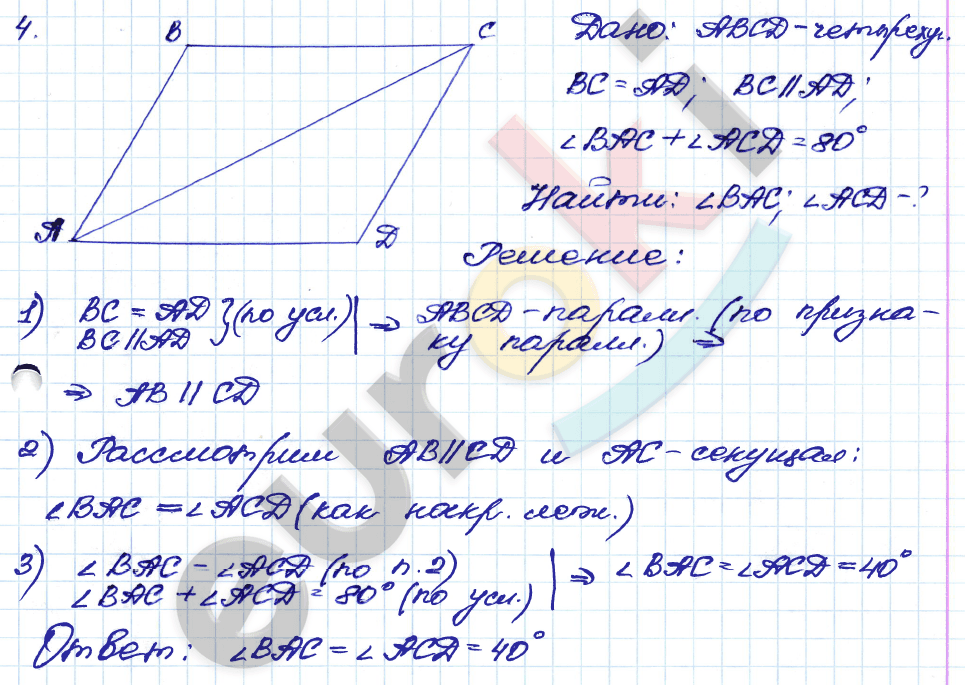 4.
B
C
A
D
Дано: ABCD - четырехуг.
BC = AD; BC || AD;
∠BAC + ∠ACD = 80°
Найти: ∠BAC; ∠ACD - ?
Решение:
1) BC = AD
BC || AD } (по усл.) | ⇒ ABCD - паралл. (по призна-
ку паралл.) ⇒
⇒ AB || CD
2) Рассмотрим AB || CD и AC - секущая:
∠BAC = ∠ACD (как накр. леж.)
3) ∠BAC - ∠ACD (по п. 2)
∠BAC + ∠ACD = 80° (по усл.) | ⇒ ∠BAC = ∠ACD = 40°
Ответ: ∠BAC = ∠ACD = 40°
euroki